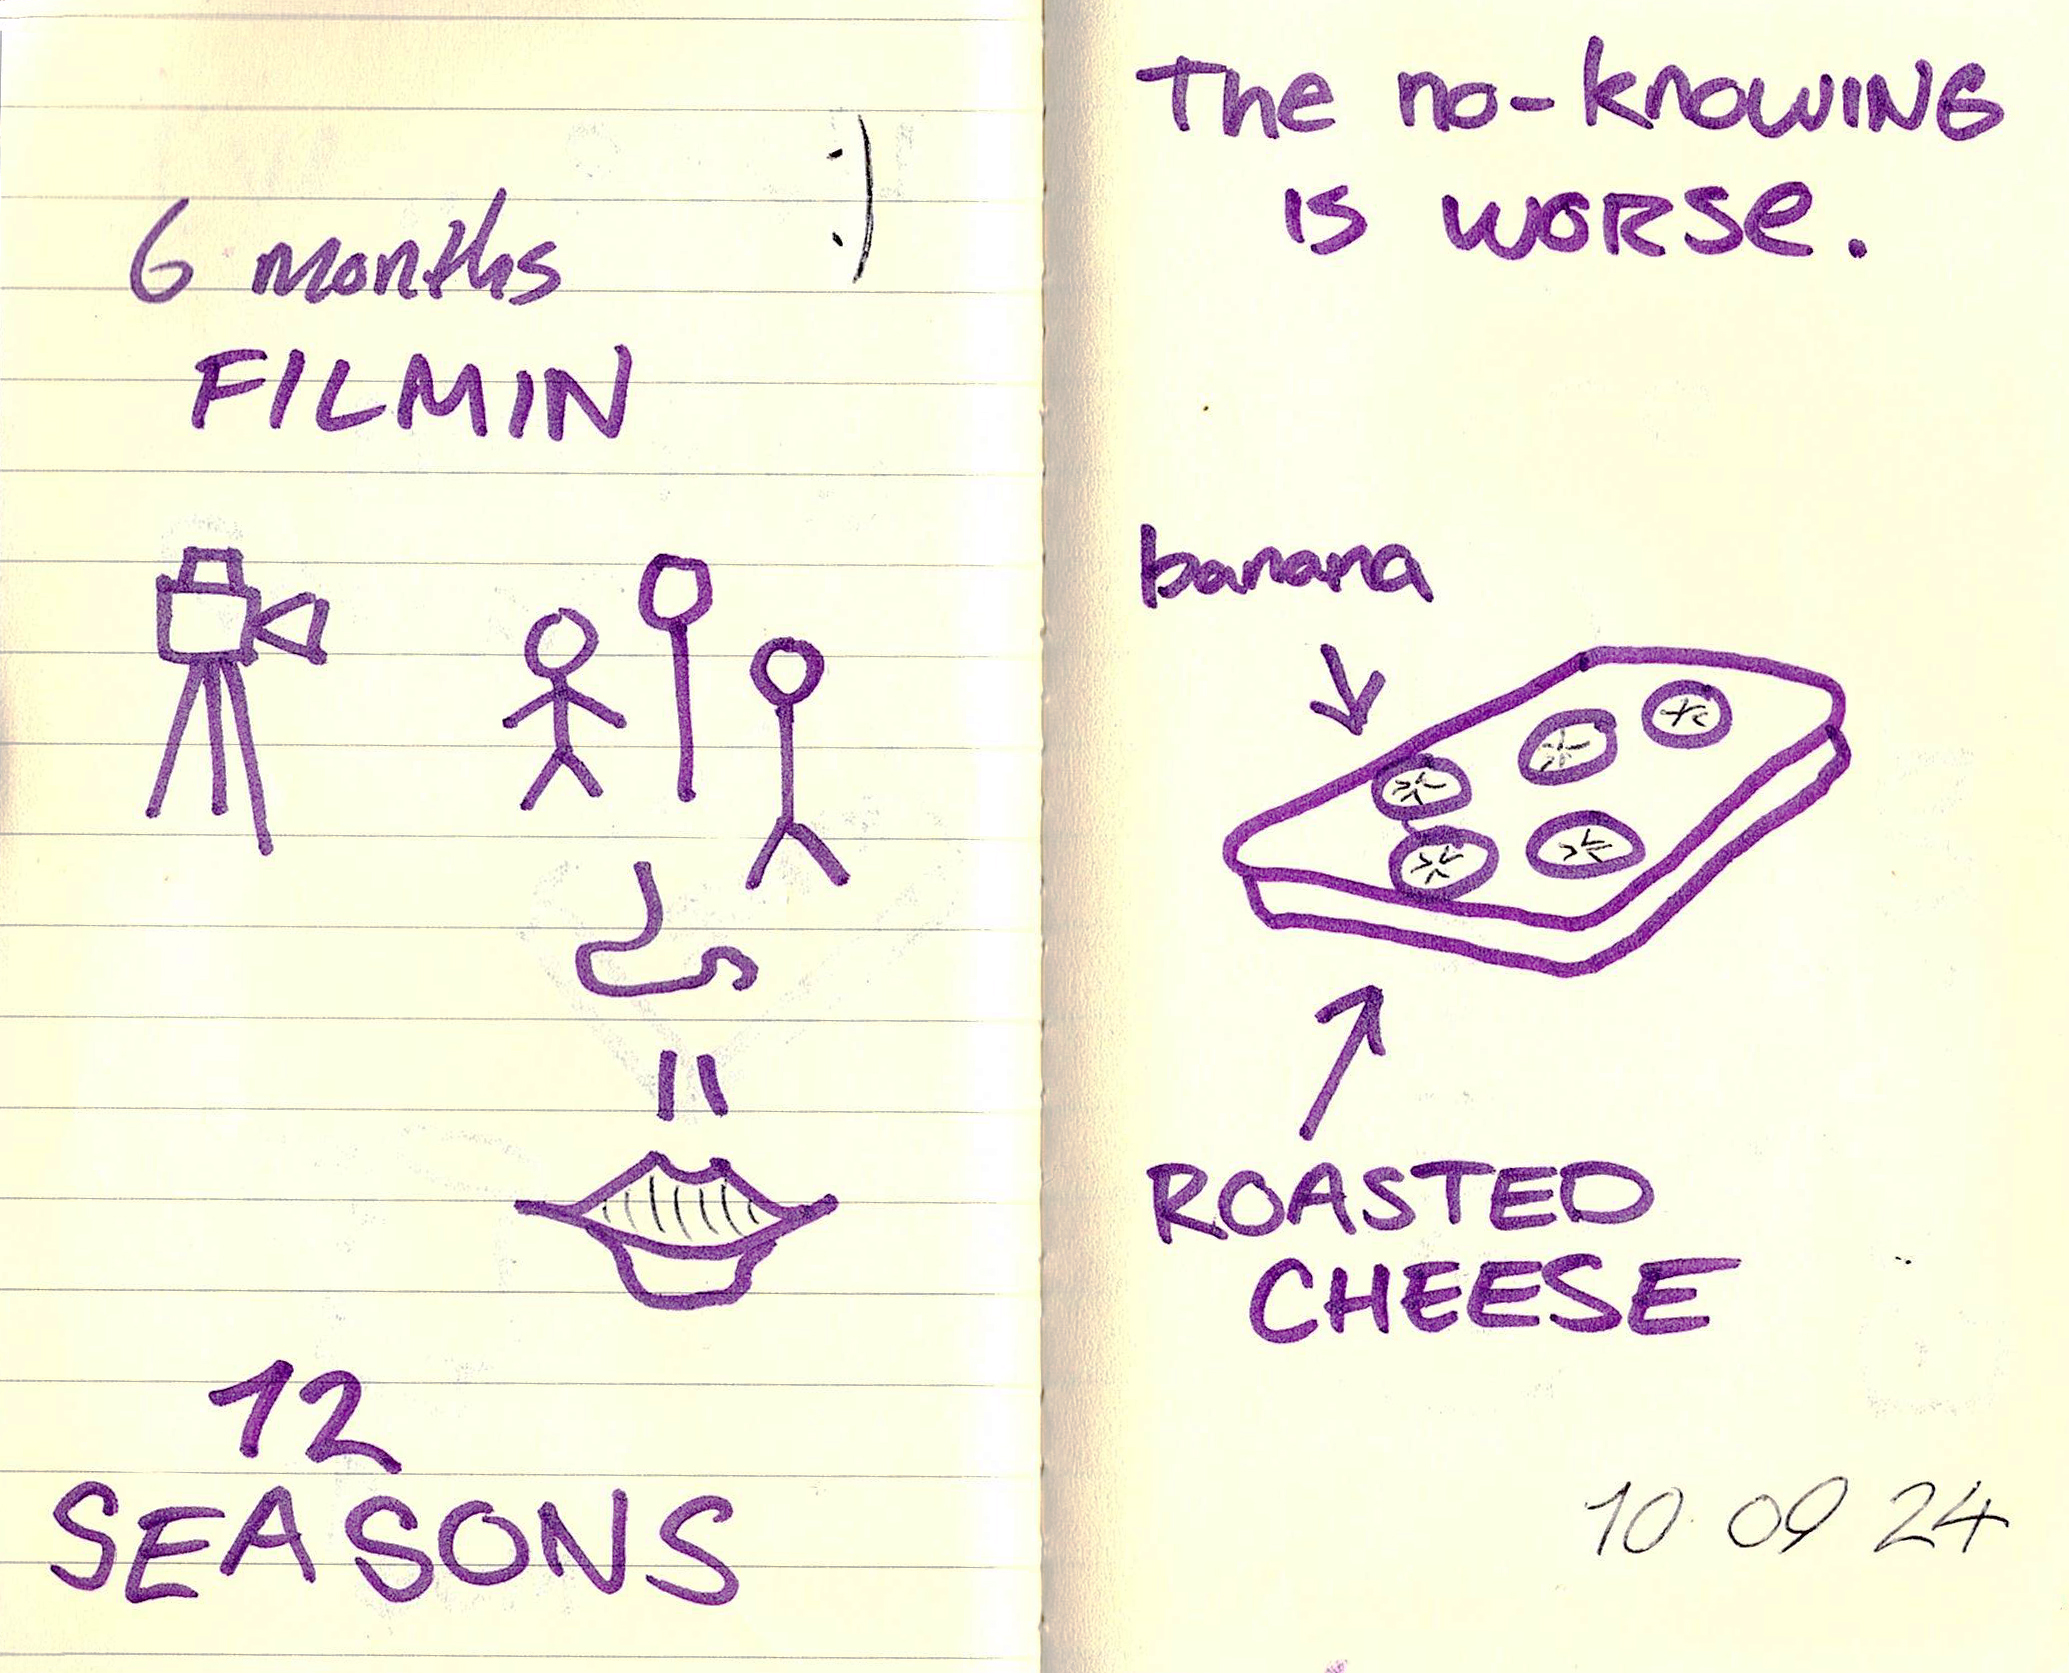 :)
6 months
FILMIN
12
SEASONS
The no-knowing
is worse.
banana
ROASTED
CHEESE
10 09 24